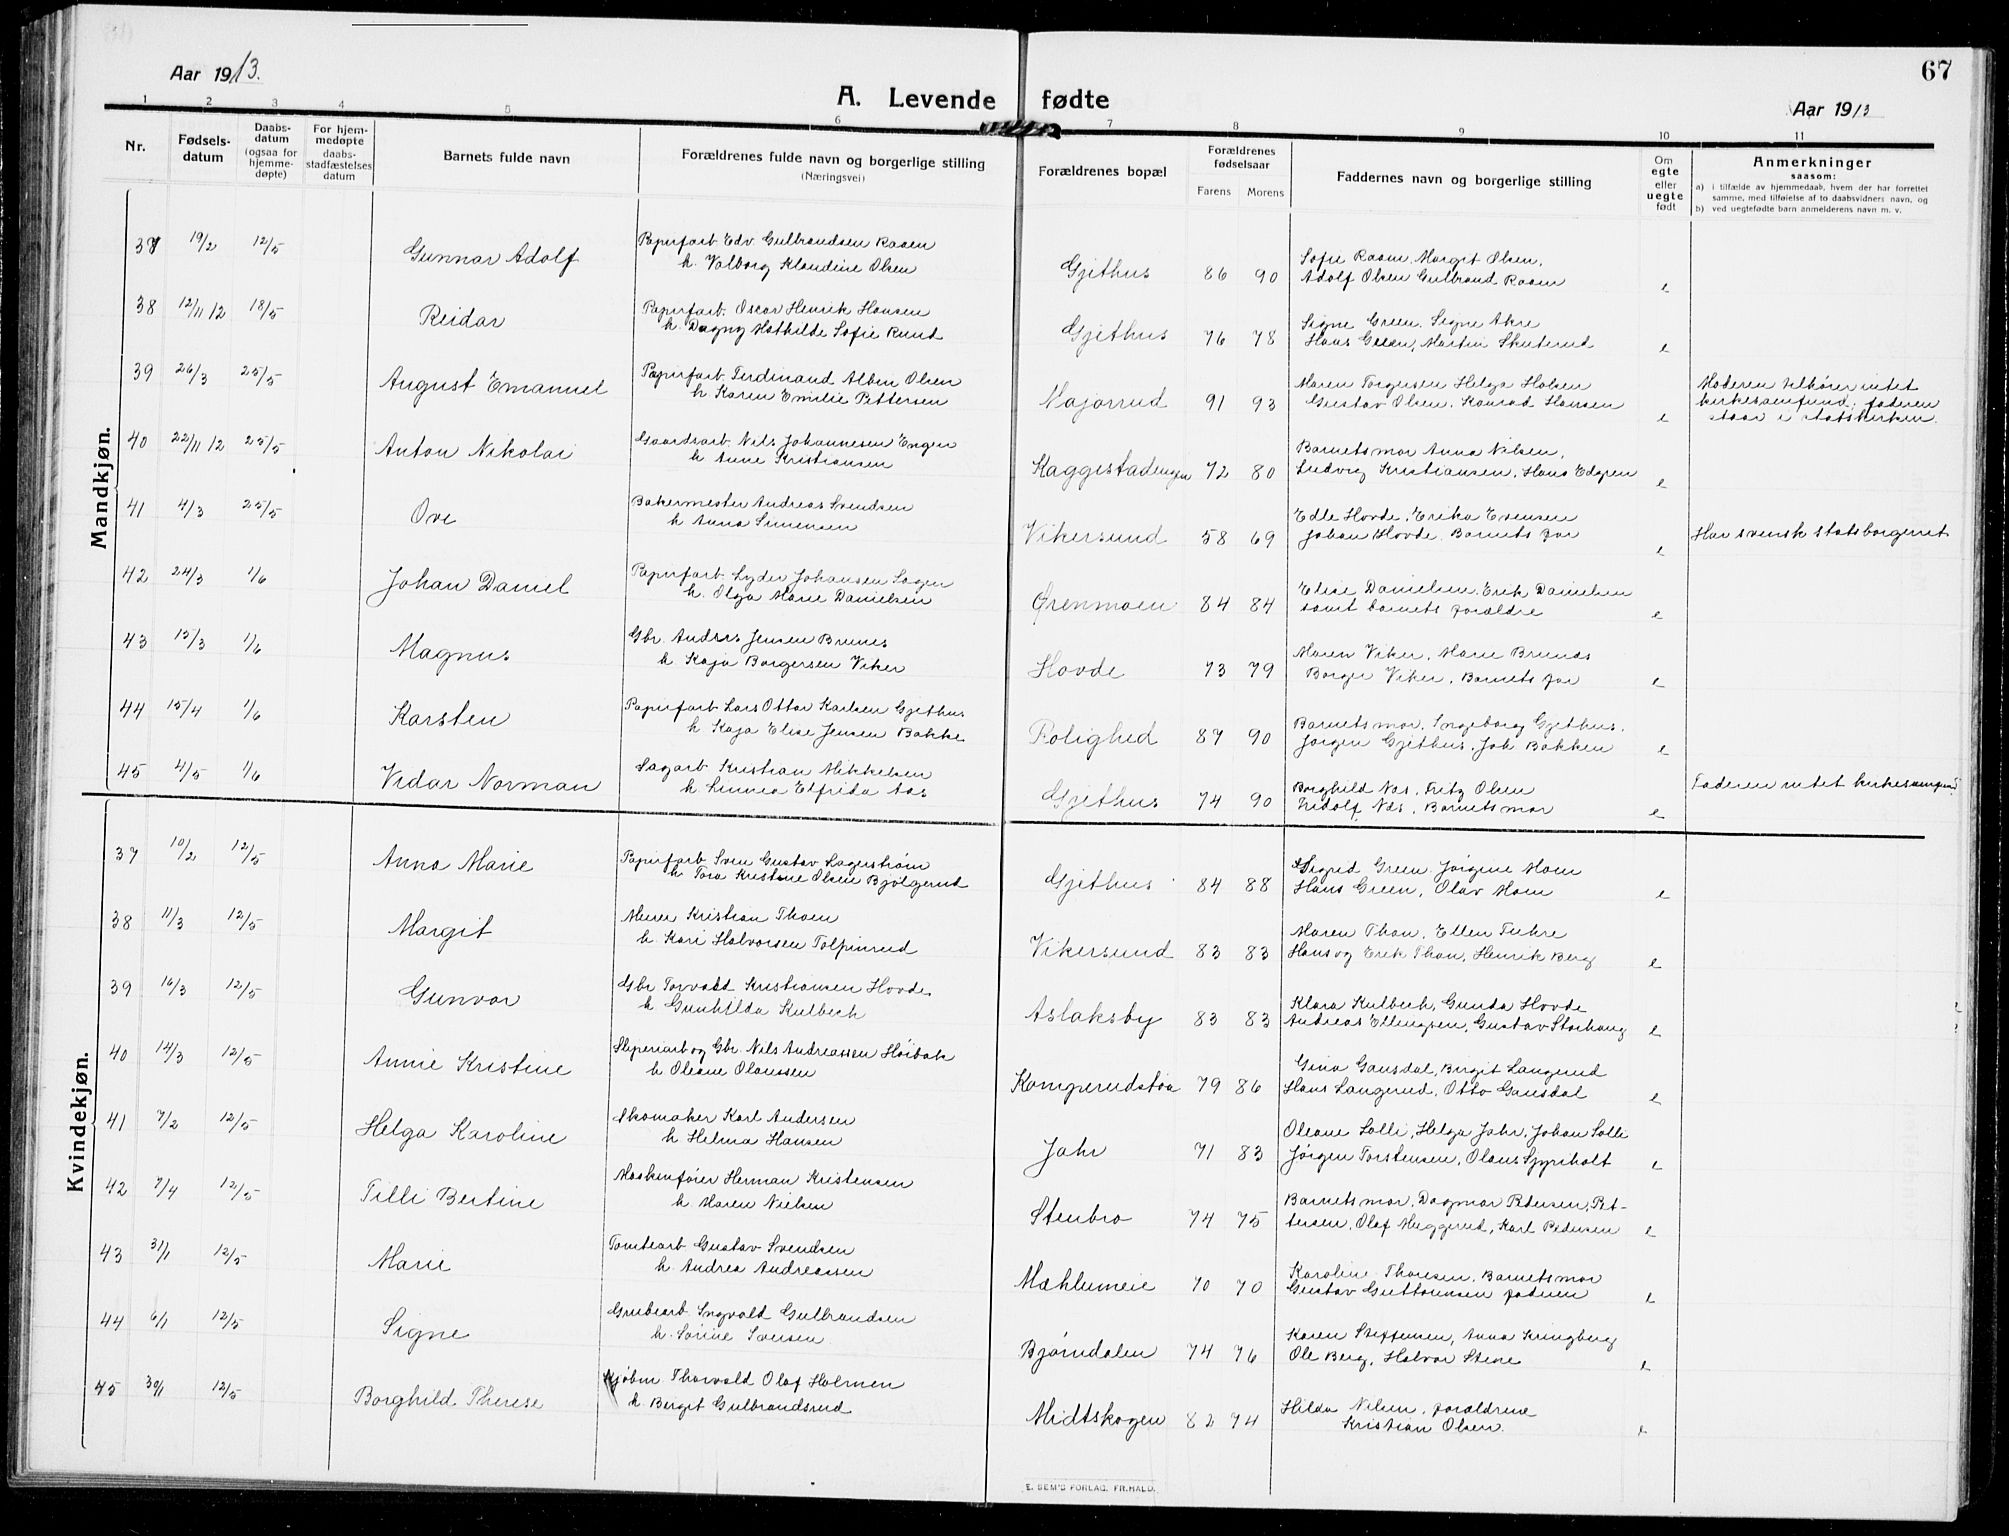 Aar 1913.
A. Levende fødte
Aar 1913
67
1 2 3 4 5 6 7 8 9 10 11
Nr.
Fødsels-
datum
Daabs-
datum
(ogsaa for
hjemme-
døpte)
For hjem-
medøpte
daabs-
stadfæstelses
datum
Barnets fulde navn
Forældrenes fulde navn og borgerlige stilling
(Næringsvei)
Forældrenes bopæl
Forældrenes
fødselsaar
Farens Morens
Faddernes navn og borgerlige stilling
Om
egte
eller
uegte
født
Anmerkninger
saasom:
a) i tilfælde av hjemmedaab, hvem der har forrettet
samme, med tilføielse af to daabsvidners navn, og
b) ved uegtefødte barn anmelderens navn m. v.
Mandkjøn.
37 19/2 12/5 Gunnar Adolf
Papirfarb Edv. Gulbrandsen Raaen
h. Valborg Klaudine Olsen
Gjethus 86 90
Sofie Raaen, Margit Olsen,
Adolf Olsen Gulbrand Raaen
e
38 12/11 12 18/5 Reidar
Papirfarb. Oscar Henrik Hansen
h. Dagny Mathilde Sofie Rund
Gjethus 76 78
Signe Green. Signe Akre
Hans Green, Martin Skuterud
e
39 26/3 25/5 August Emanuel
Papirfarb. Ferdinand Albin Olsen
h Karen Emilie Pettersen
Majorrud 91 93
Maren Torgersen Helga Holsen
Gustav Olsen. Konrad Hansen
e
Moderen tilhører intet
kirkesamfund; faderen
staar i statskirken.
40 22/11 12 25/5 Anton Nikolai
Gaardsarb. Nils Johannesen Engen
h Anne Kristiansen
Kaggestadengen 72 80
Barnets mor Anna Nilsen,
Ludvig Kristiansen, Hans Edgren
e
41 4/3 25/5 Ove
Bakermester Andreas Svendsen
h Anna Simensen
Vikersund 58 69
Edle Hovde, Erika Evensen
Johan Hovde. Barnets far
e
Har svensk statsborgerret
42 24/3 1/6 Johan Daniel
Papirfarb. Lyder Johansen Sagen
h. Olga Marie Danielsen
Ørenmoen 84 84
Elise Danielsen. Erik Danielsen
samt barnets forældre
e
43 15/3 1/6 Magnus
Gbr. Anders Jensen Brunes
h Kaja Borgersen Viker
Hovde 73 79
Maren Viker, Marie Brunes
Borger Viker, Barnets far
e
44 15/4 1/6 Karsten
Papirfarb Lars Ottar Karlsen Gjethus
h Kaja Elise Jensen Bakke
Rolighed 87 90
Barnets mor, Ingeborg Gjethus.
Jørgen Gjethus. Joh Bakken
e
45 4/5 1/6 Vidar Norman
Sagarb Kristian Mikkelsen
h Linnea Elfrida Aas
Gjethus 74 90
Borghild Næs, Fritz Olsen
Vidolf Næs, Barnets mor
e
Faderen intet kirkesamfund
Kvindekjøn.
37 10/2 12/5 Anna Marie
Papirfarb Sven Gustav Lagerstrøm
h Tora Kristine Olsen Bjølgerud
Gjethus 84 88
Sigrid Green Jørgine Moen
Hans Green, Olav Moen
e
38 11/3 12/5 Margit
Murer Kristian Thoen
h. Kari Halvorsen Tolpinrud
Vikersund 83 83
Maren Thon, Ellen Fuhre
Hans og Erik Thon, Henrik Berg
e
39 16/3 12/5 Gunvor
Gbr Torvald Kristiansen Hovde
h Gunhilda Kulbech
Aslaksby 83 83
Klara Kulbech, Gunda Hovde
Andreas Ellingsen, Gustav Storhaug
e
40 14/3 12/5 Annie Kristine
Sliperiarb og Gbr. Nils Andreassen Høibak
h Oleane Olaussen
Komperudstøa 79 86
Gina Gausdal, Birgit Langerud
Hans Langerud, Otto Gausdal
e
41 7/2 12/5 Helga Karoline
Skomaker Karl Andersen
h Helma Hansen
Jahr 71 83
Oleane Solli, Helga Jahr, Johan Solli
Jørgen Torstensen, Olaus Spyriholt
e
42 7/4 12/5 Tilli Bertine
Maskinfører Herman Kristensen
h. Maren Nielsen
Stenbro 74 75
Barnets mor, Dagmar Petersen, Pet-
tersen, Olaf Meggerud, Karl Pedersen
e
43 31/1 12/5 Marie
Tomtearb Gustav Svendsen
h. Andrea Andreassen
Mæhlumeie 70 70
Karoline Thoresen, Barnets mor
Gustav Guttormsen faderen
e
44 6/1 12/5 Signe
Grubearb Ingvald Gulbrandsen
h. Sørine Iversen
Bjørndalen 74 76
Karen Steffensen, Anna Kringberg
Ole Berg, Halvor Stene
e
45 30/1 12/5 Borghild Therese
Kjøbm Thorvald Olaf Holmen
h. Birgit Gulbrandsrud
Midtskogen 82 74
Hilda Nilsen, forældrene
Kristian Olsen.
e
E. SEM'S FORLAG, FR.HALD.